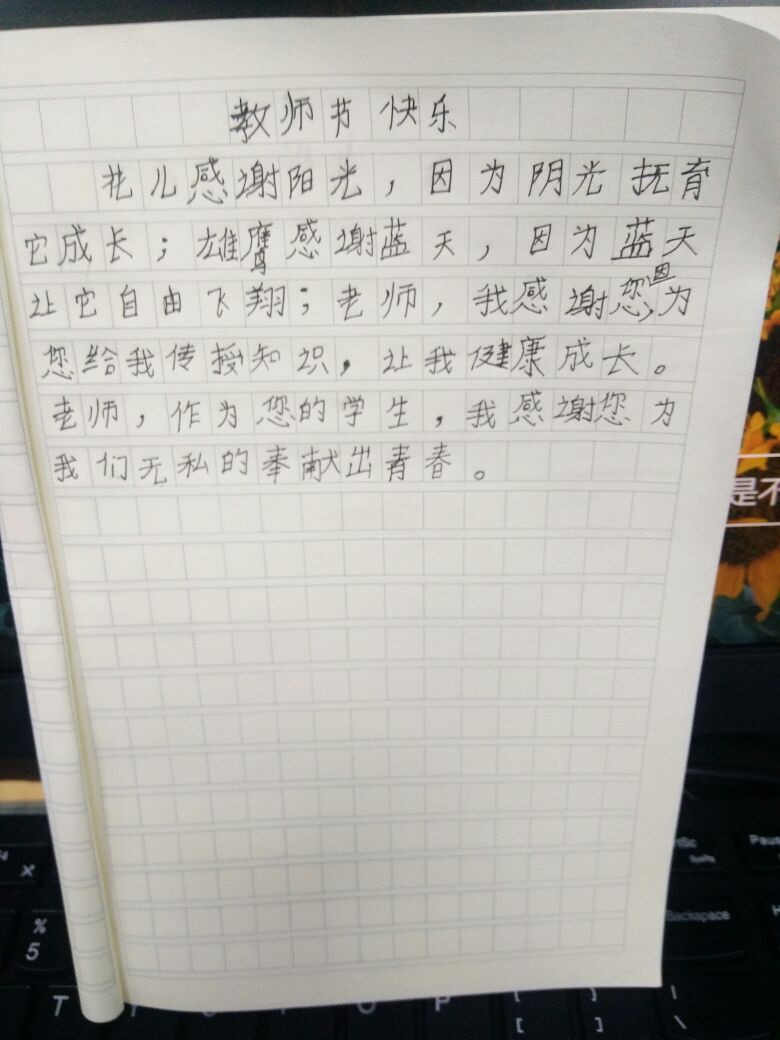 教师节快乐
花儿感谢阳光，因为阴光抚育
它成长；雄鹰感谢蓝天，因为蓝天
让它自由飞翔；老师，我感谢您，因为
您给我传授知识，让我健康成长。
老师，作为您的学生，我感谢您为
我们无私的奉献出青春。
是不
%
5
T
Y
U
I
O
P
[
[
]
]
|
\
Backspace